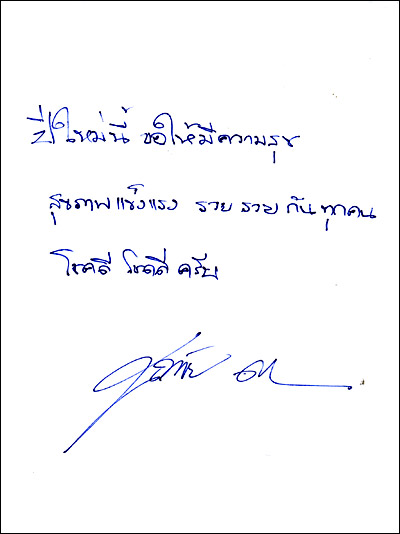 ปีใหม่นี้ ขอให้มีความสุข
สุขภาพแข็งแรง รวย รวย กันทุกคน
โชคดี โชคดี ครับ